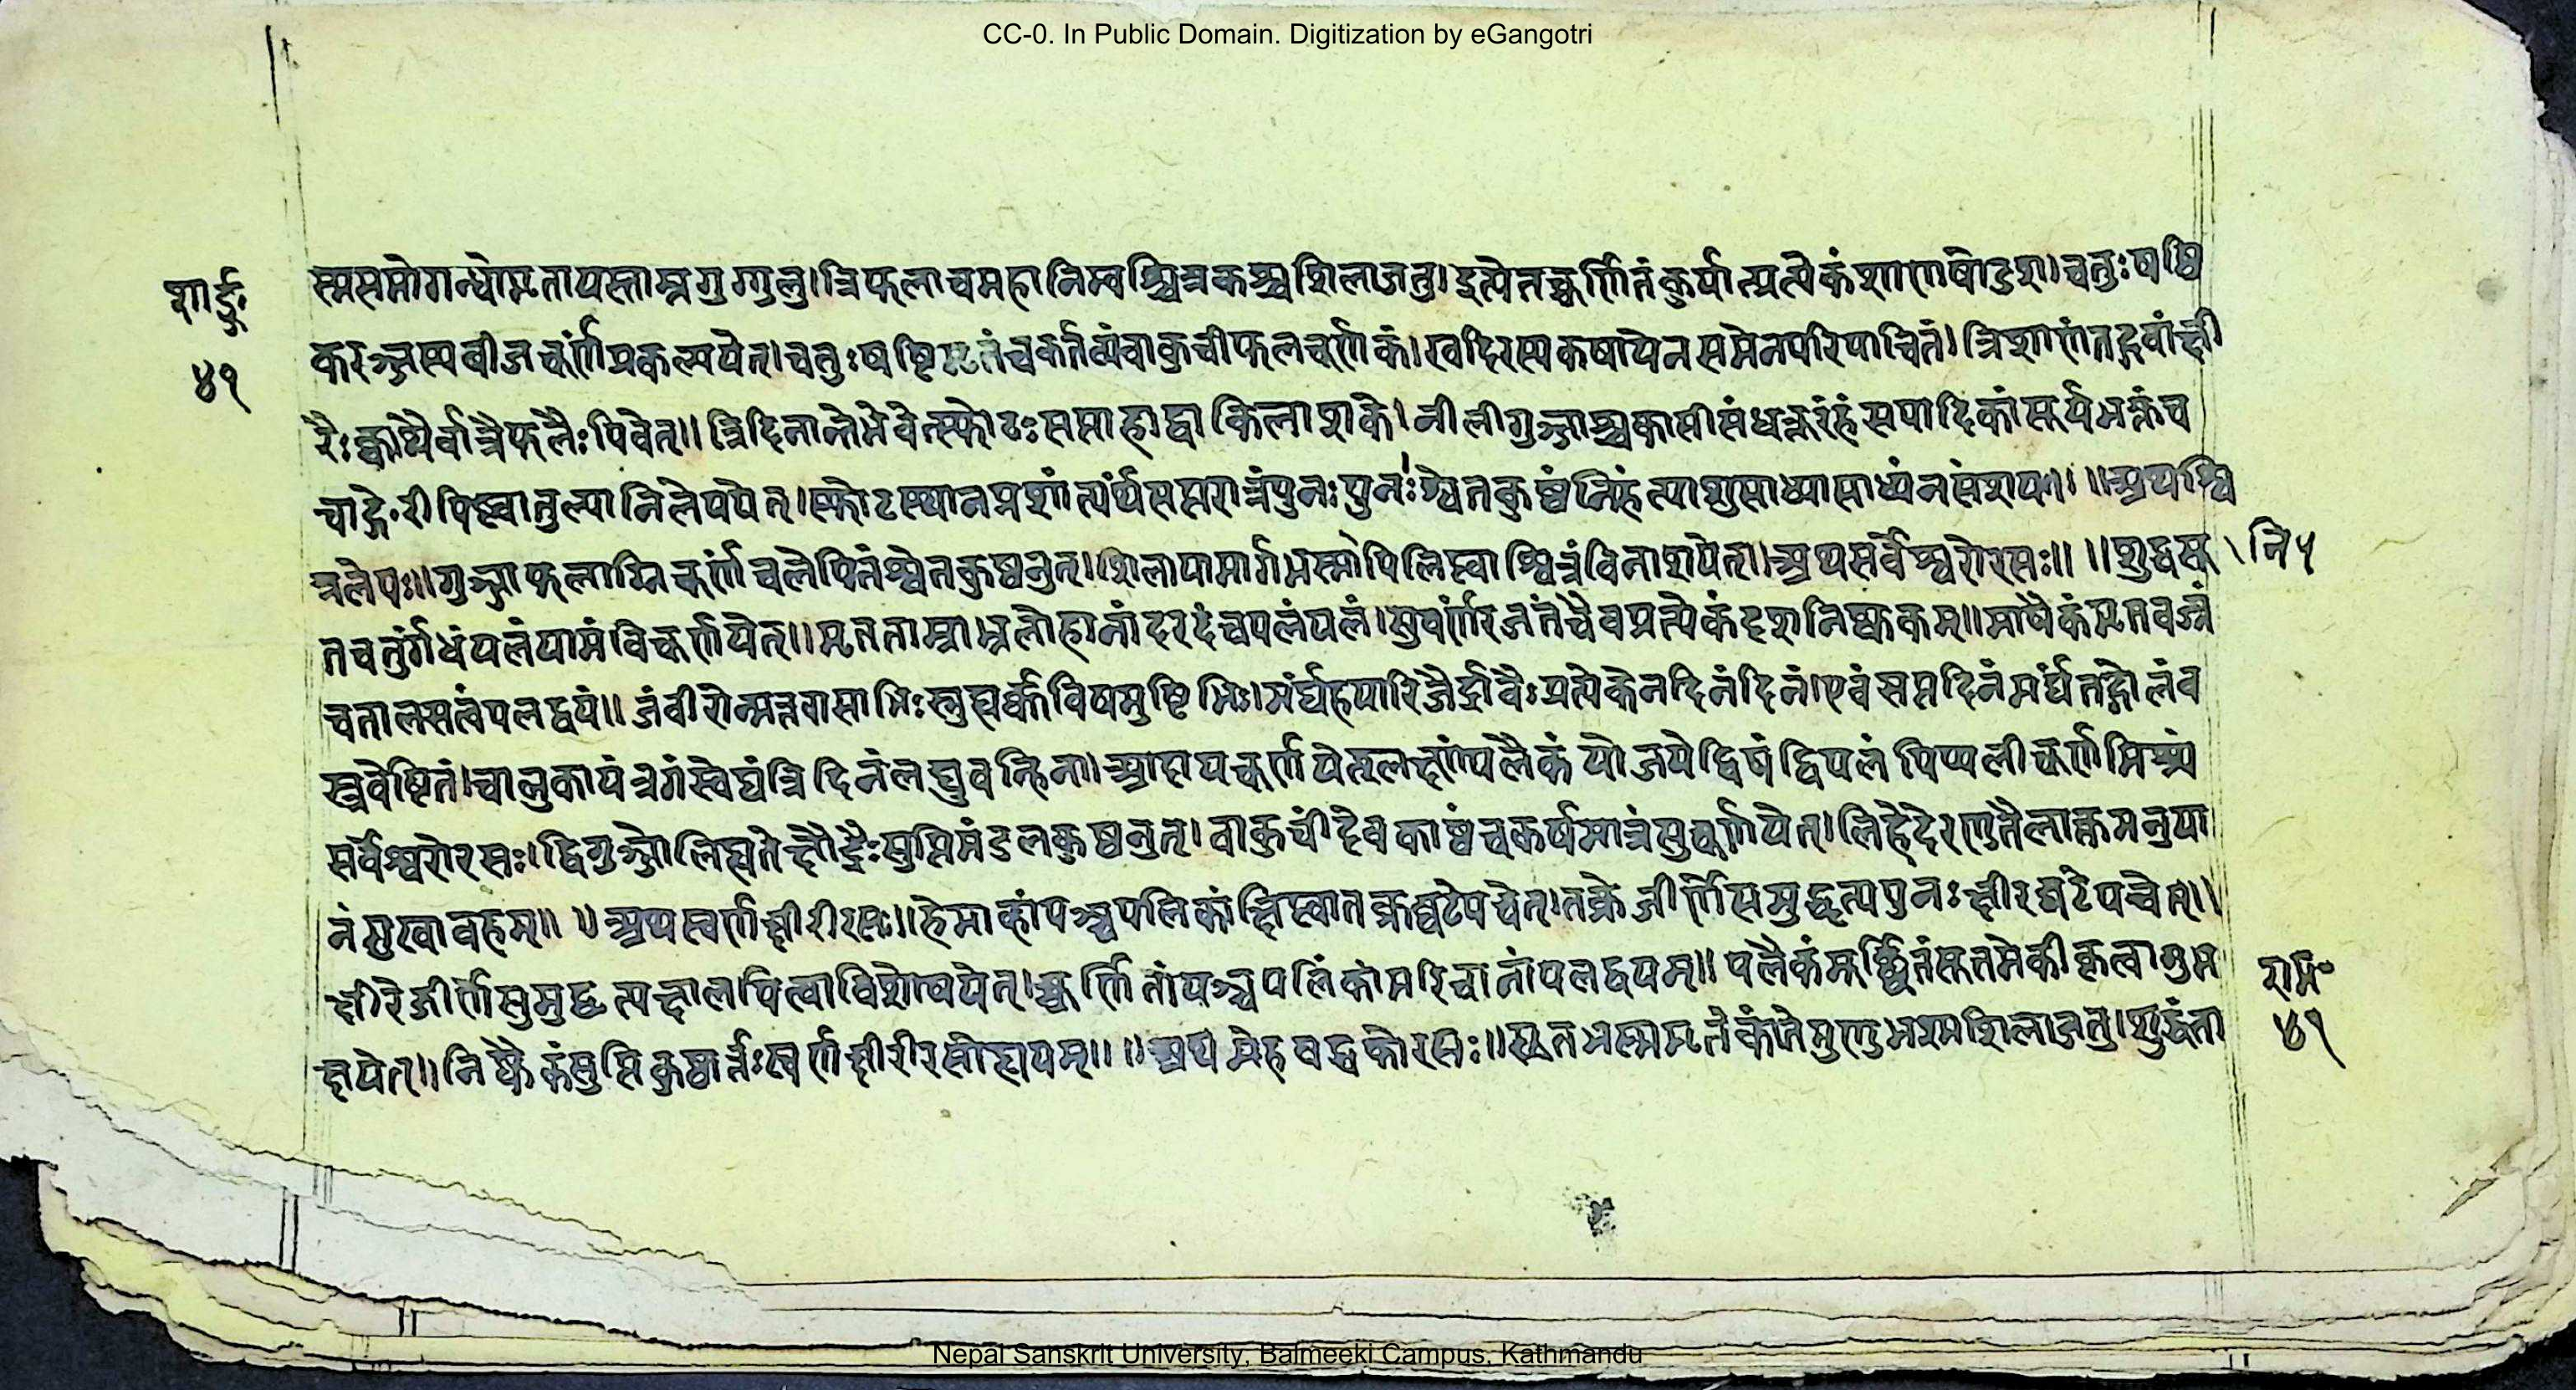 CC-0. In Public Domain. Digitization by eGangotri
शार्ङ्ग॰
४१
स्मसमोगन्धोमृतायस्ताम्रगुग्गुलु।त्रिफलाचमहानिम्बश्चित्रकश्चशिलाजतु।इत्येतच्चूर्णितंकुर्यात्प्रत्येकंशाणषोडश।चतुःषष्टि
करञ्जस्यबीजचूर्णंप्रकल्पयेत्।चतुःषष्टिमृतंचकर्तव्यंवाकुचीफलचूर्णकं।खदिरस्यकषायेनसमेनपरिपाचितं।त्रिशाणंतद्गवांक्षी
रैःक्वाथैर्वात्रैफलैःपिवेत्॥त्रिदिनान्तेभवेत्स्फोटःसप्ताहाद्वाकिलाशके।नीलीगुञ्जाश्चकासीसंधत्तूरंहंसपादिकांसूर्यभक्तंच
चाङ्गेरीपिष्ट्वातुल्यानिलेपयेत्।स्फोटस्थानप्रशांत्यर्थंसप्तरात्रंपुनःपुनःश्वेतकुष्ठंनिहंत्याशुसाध्यासाध्यंनसंशयः।॥अथश्वि
त्रलेपः॥गुञ्जाफलाग्निचूर्णंचलेपितंश्वेतकुष्ठनुत्।शिलापामार्गभस्मापिलिप्त्वाश्वित्रंविनाशयेत्।अथसर्वेश्वरोरसः॥॥शुद्धसू
नि५
तचतुर्गंधंपलंयामंविचूर्णयेत्॥मृतताम्राभ्रलोहानांदरदंचपलंपलं।सुवर्णंरजतंचैवप्रत्येकंदशनिष्ककम्॥माषैकंमृतवज्रं
चतालसत्वंपलद्वयं॥जंवीरोन्मत्तवासाभिःस्नुह्यर्कविषमुष्टिभिः।मर्द्यंहयारिजैर्द्रावैःप्रत्येकेनदिनंदिनं।एवंसप्तदिनंमर्द्यंतद्गोलंव
स्त्रवेष्टितं।वालुकायंत्रगंस्वेद्यंत्रिदिनंलघुवन्हिना।आदायचूर्णयेत्श्लक्ष्णंपलैकंयोजयेद्विषंद्विपलंपिप्पलीचूर्णमिश्रं
सर्वेश्वरोरसः।द्विगुञ्जोलिह्यतेक्षौद्रैःसुप्तिमंडलकुष्ठनुत्।वाकुचींदेवकाष्ठंचकर्षमात्रंसुचूर्णयेत्।लिहेदेरण्डतैलाक्तमनुपा
नंसुखावहम्॥॥अथस्वर्णक्षीरीरसः॥हेमाह्वांपञ्चपलिकांक्षिप्त्वातक्रघटेपचेत्।तक्रेजीर्णेसमुद्धृत्यपुनःक्षीरघटेपचेत्॥
क्षीरेजीर्णेसुमुद्धृत्यक्षालयित्वाविशोषयेत्।चूर्णितांपञ्चपलिकांमरिचानांपलद्वयम्॥पलैकंमूर्छितंसूतमेकीकृत्वातुभ
रामः॰
क्षयेत्॥निष्कैकंसुप्तिकुष्ठार्त्तःस्वर्णक्षीरीरसोह्ययम्॥॥अथमेहबद्धकोरसः॥सूतभस्ममृतंकांतंमुण्डभस्मशिलाजतु।शुद्धंता
४१
Nepal Sanskrit University, Balmeeki Campus, Kathmandu